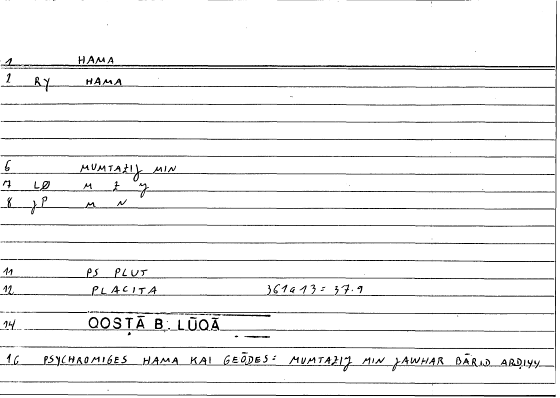 1 HAMA
2 RY HAMA
6 MUMTAZIǦ MIN
7 LØ M Z Ǧ
8 ǦP M N
11 PS PLUT
12 PLACITA 361a13 = 37.9
14 QOSṬĀ B. LŪQĀ
16 PSYCHROMIGES HAMA KAI GEŌDES: MUMTAZIǦ MIN ǦAWHAR BĀRID ARḌIYY